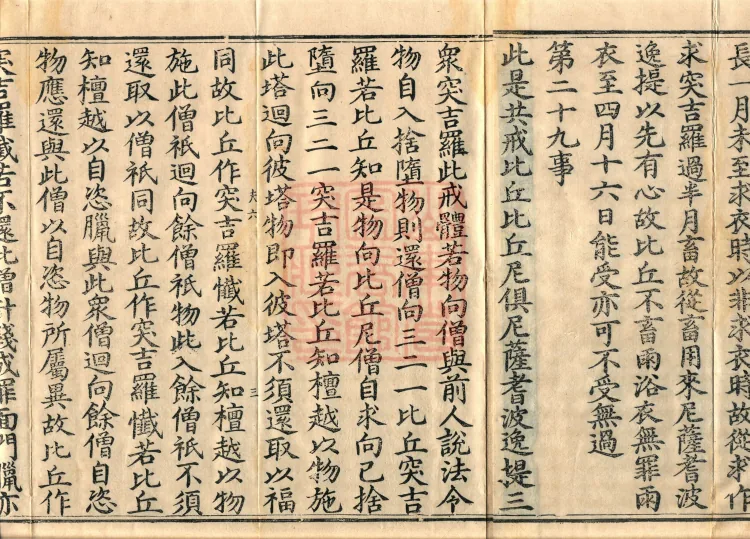 長一月未至求衣時以非求衣時故從求作
求突吉羅過半月畜故從畜用來尼薩耆波
逸提以先有心故比丘不畜雨浴衣無罪雨
衣至四月十六日能受亦可不受無過
第二十九事
此是共戒比丘比丘尼俱尼薩耆波逸提三
眾突吉羅此戒體若物向僧與前人說法令
物自入捨墮物則還僧向三二一比丘突吉
羅若比丘知是物向比丘尼僧自求向己捨
墮向三二一突吉羅若比丘知檀越以物施
此塔迴向彼塔物即入彼塔不須還取以福
夫六 三
同故比丘作突吉羅懺若比丘知檀越以物
施此僧祇迴向餘僧祇物此入餘僧祇不須
還取以僧祇同故比丘作突吉羅懺若比丘
知檀越以自恣臘與此眾僧迴向餘僧自恣
物應還與此僧以自恣物所屬異故比丘作
突吉羅懺若不還此僧計錢成罪面門臘亦